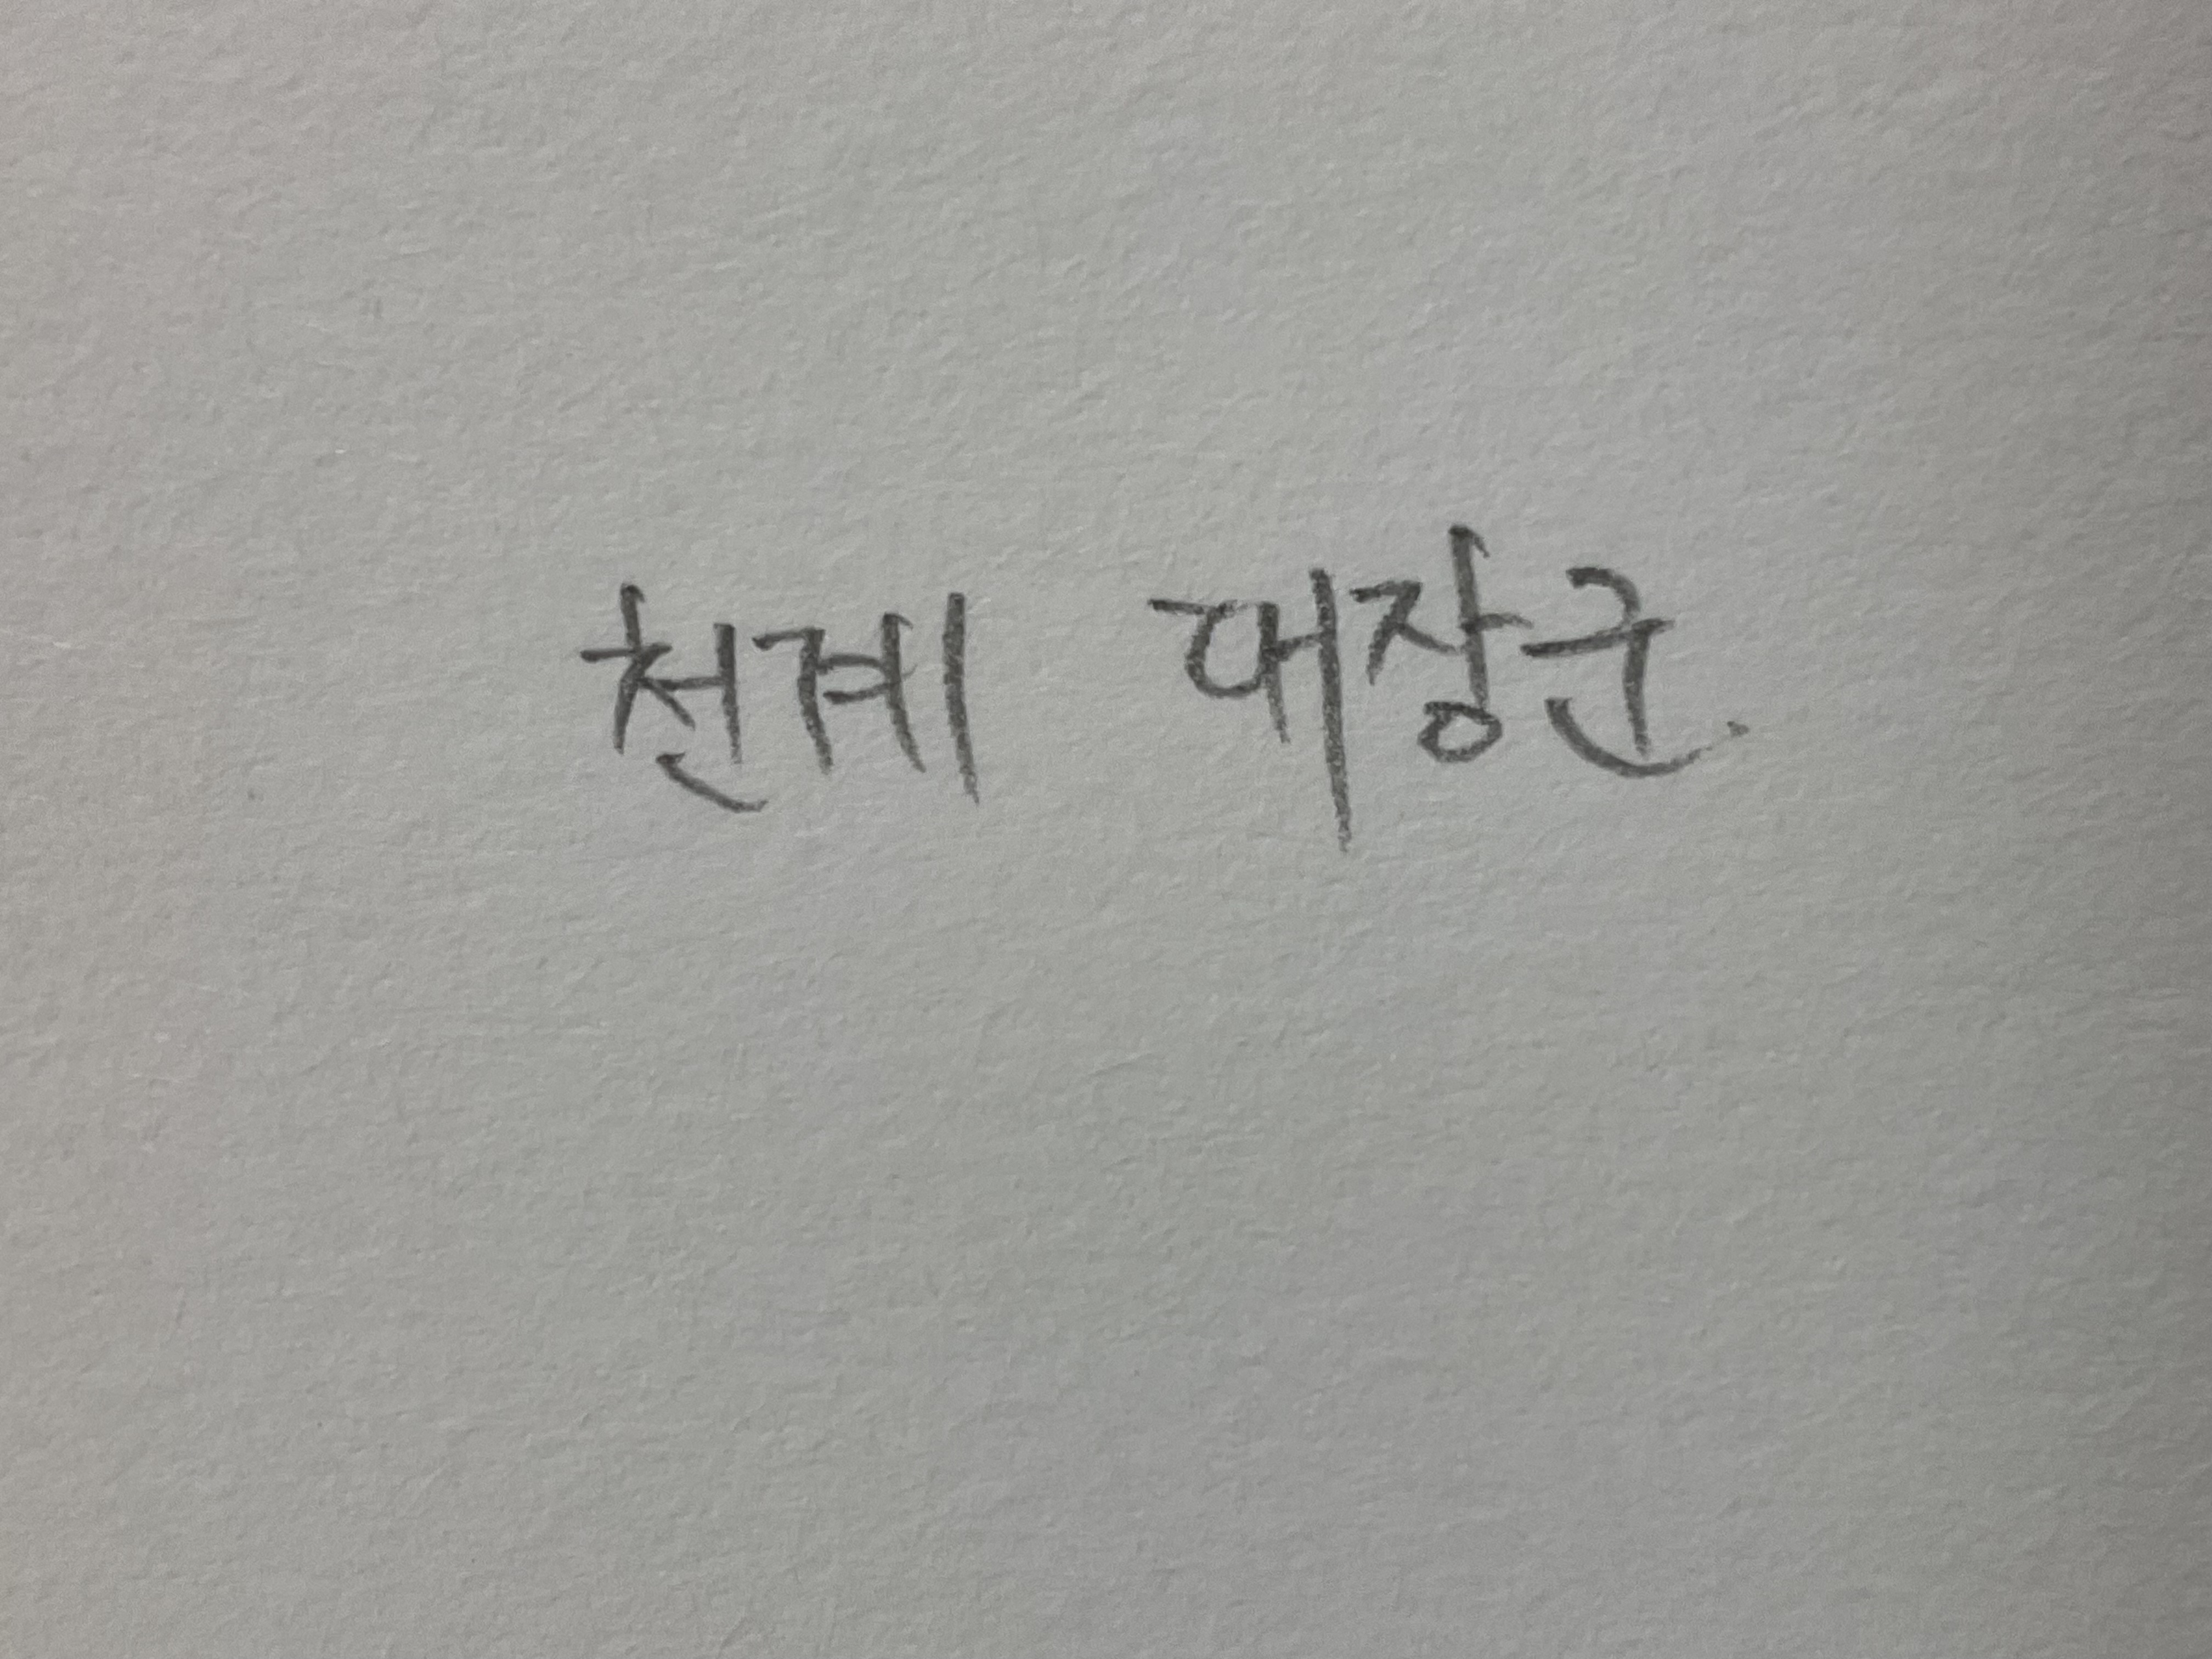 천계 대장군.